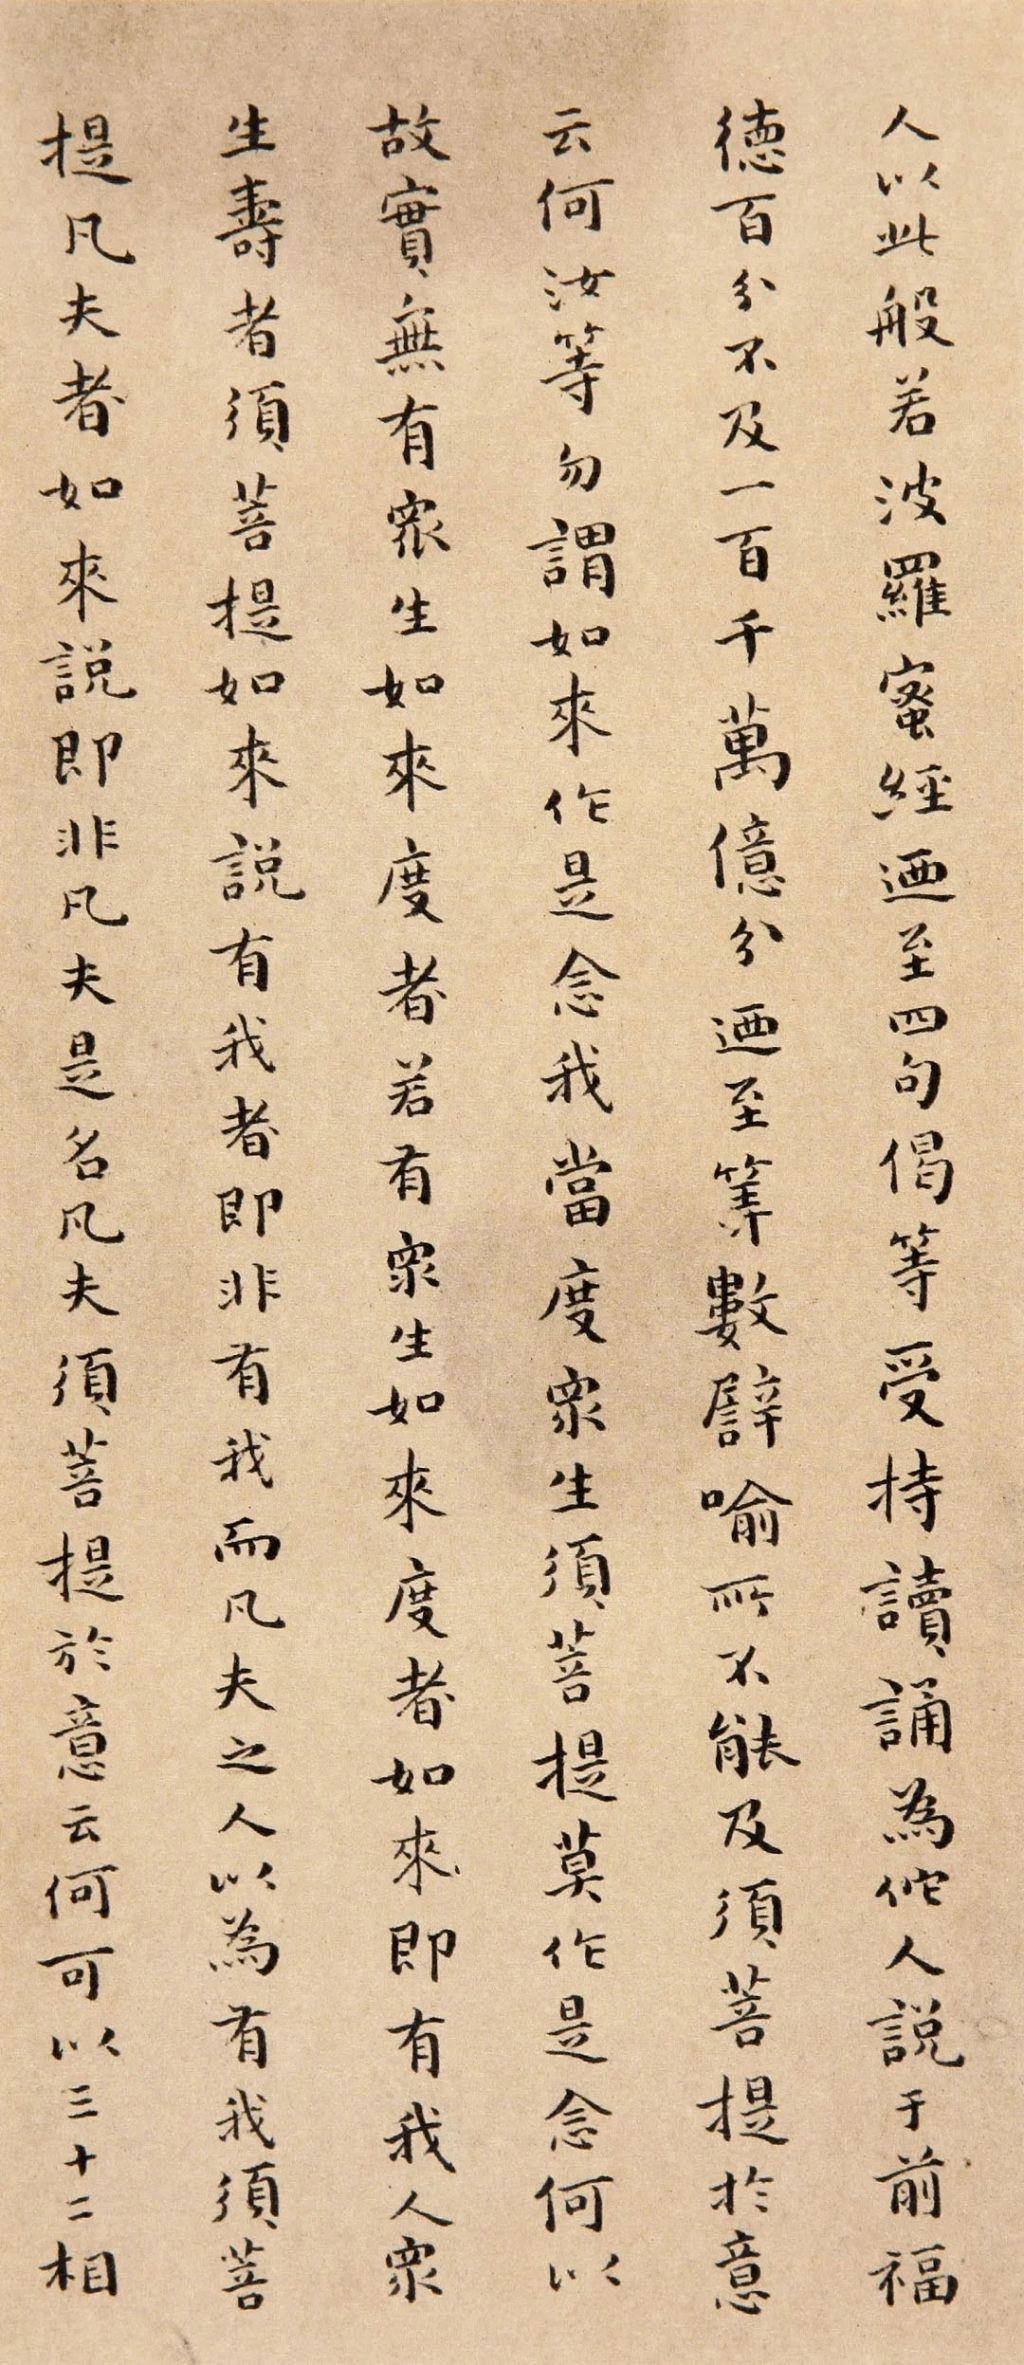 人以此般若波羅蜜經迺至四句偈等受持讀誦為佗人説于前福
德百分不及一百千萬億分迺至筭數譬喻所不能及須菩提於意
云何汝等勿謂如來作是念我當度眾生須菩提莫作是念何以
故實無有眾生如來度者若有眾生如來度者如來即有我人眾
生壽者須菩提如來説有我者即非有我而凡夫之人以為有我須菩
提凡夫者如來説即非凡夫是名凡夫須菩提於意云何可以三十二相